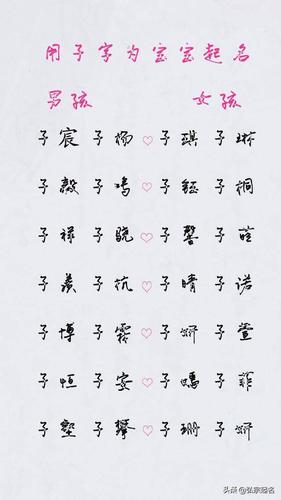 用子字为宝宝起名
男孩 女孩
子宸 子杨 ♡ 子琪 子琳
子毅 子鸣 ♡ 子钰 子桐
子祥 子骁 ♡ 子馨 子
子羡 子杭 ♡ 子晴 子诺
子博 子霖 ♡ 子妍 子萱
子恒 子安 ♡ 子嫣 子菲
子堃 子攀 ♡ 子珊 子妍
头条@弘宗起名